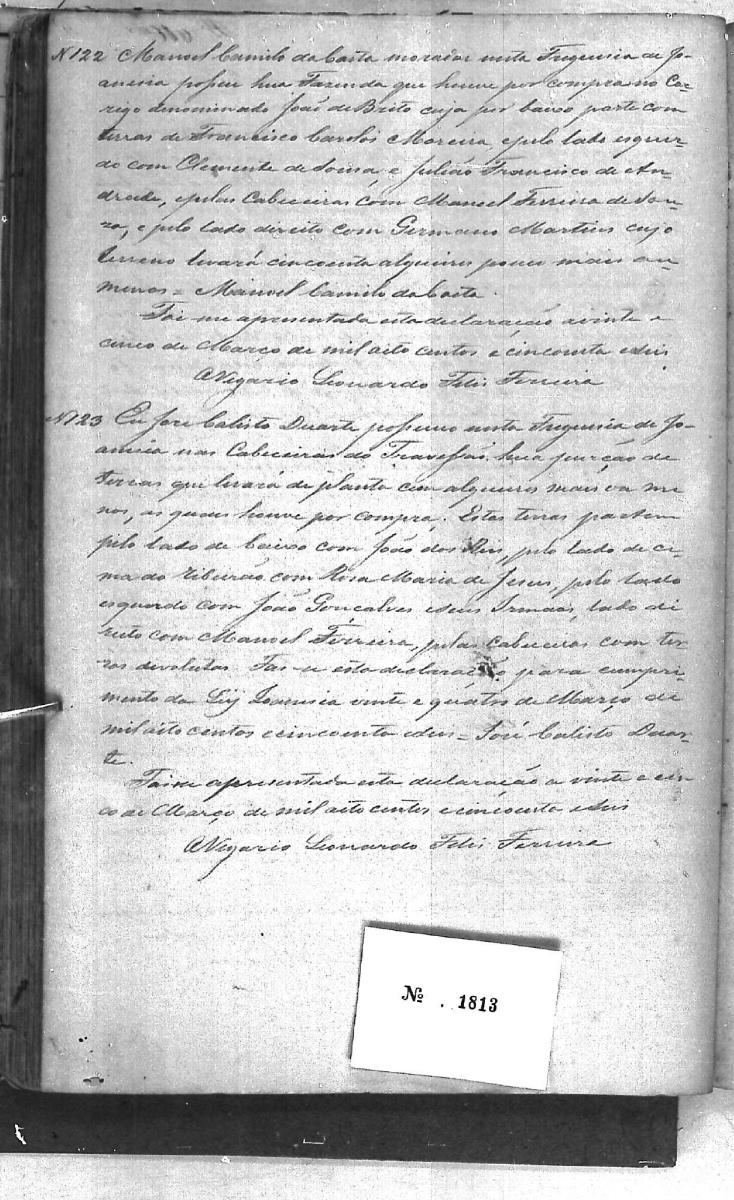 N 122 Manoel Camilo da Costa morador nesta Freguesia de Jo-
anesia possue hua Fazenda que houve por compra no Cor-
rigo denominado João de Brito cuja por baixo parte com
terras de Francisco Carlos Moreira, e pelo lado esquer-
do com Clemente de Sousa, e Julião Francisco de An-
drade, e pelas Cabeceiras com Manoel Ferreira de Sou-
za, e pelo lado direito com Germano Martins cujo
terreno levará cincoenta alqueires pouco mais ou
menos = Manoel Camilo da Costa.
Foi-me apresentada esta declaração a vinte e
cinco de Março de mil oito centos e cincoenta e seis
O Vegario Leonardo Felis Ferreira
N 123 Eu José Calisto Duarte possuo nesta Freguesia de Jo-
anesia nas Cabeceiras do Travessão, hua porção de
terras que levará de planta cem alqueires mais ou me-
nos, as quaes houve por compra. Estas terras partem
pelo lado de baixo com João dos Reis, pelo lado de ci-
ma do Ribeirão com Rosa Maria de Jesus, pelo lado
esquerdo com João Gonçalves e seus Irmãos, lado di-
reito com Manoel Ferreira, pelas Cabeceiras com ter-
ras devolutas. Faz-se esta declaração para cumpri-
mento da Ley Joanesia vinte e quatro de Março de
mil oito centos e cincoenta e seis = José Calisto Duar-
te.
Foi-me apresentada esta declaração a vinte e cin-
co de Março de mil oito centos e cincoenta e seis
O Vegario Leonardo Felis Ferreira
№ . 1813